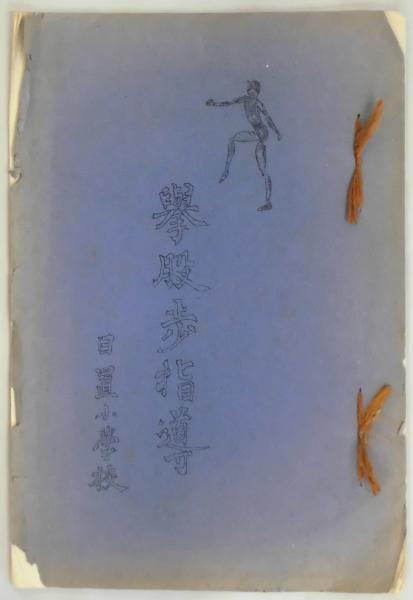 擧股歩指導
日置小學校